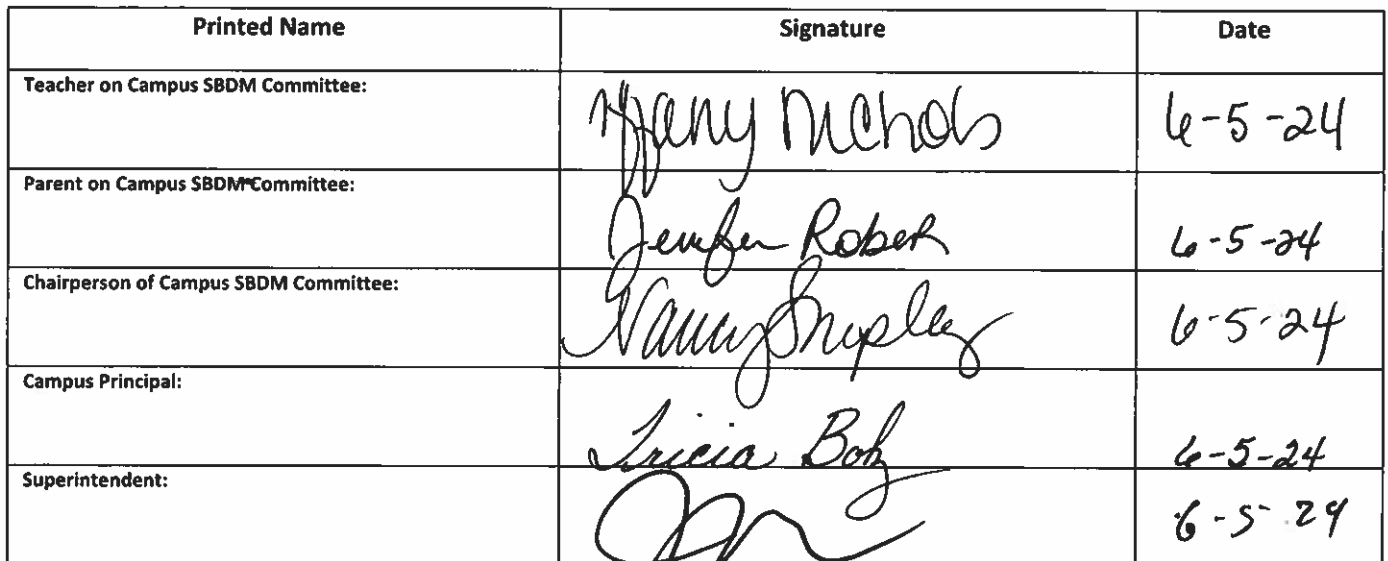 Printed Name Signature Date
Teacher on Campus SBDM Committee: Tiffany Nichols 6-5-24
Parent on Campus SBDM Committee: Jenifer 6-5-24
Chairperson of Campus SBDM Committee: Nancy 6-5-24
Campus Principal: Tricia 6-5-24
Superintendent: 6-5-24